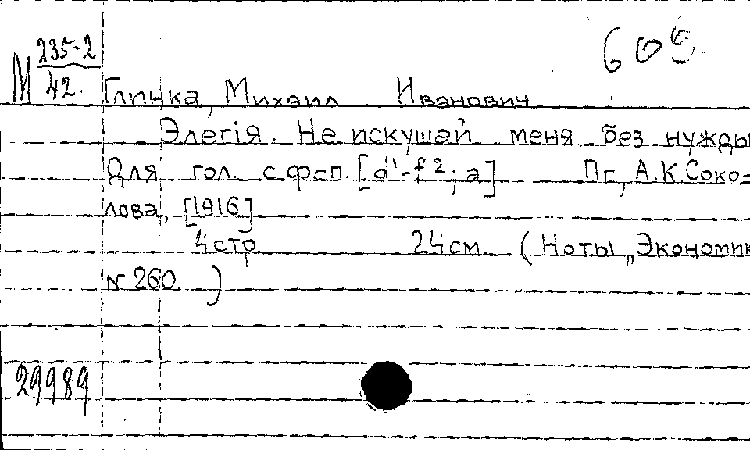 М 235-2/42.
609
Глинка, Михаил Иванович
Элегія. Не искушай меня без нужды
Для гол. с фсп. [d¹-f²; a] Пг., А.К. Соко-
лова, [1916]
4 стр 24 см. (Ноты „Экономик
№ 260 )
29989